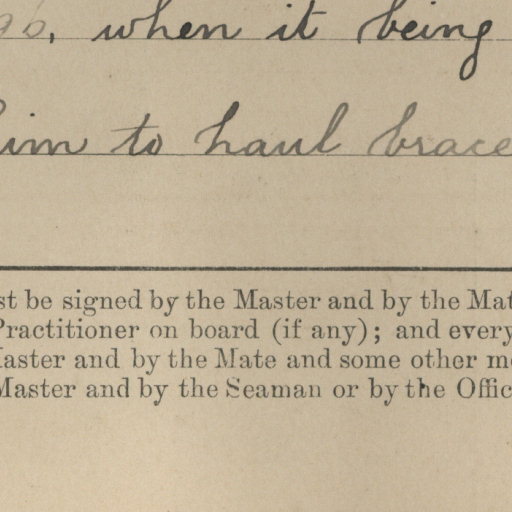 96, when it being
him to haul brace
st be signed by the Master and by the Mat
Practitioner on board (if any); and every
Master and by the Mate and some other me
Master and by the Seaman or by the Offic